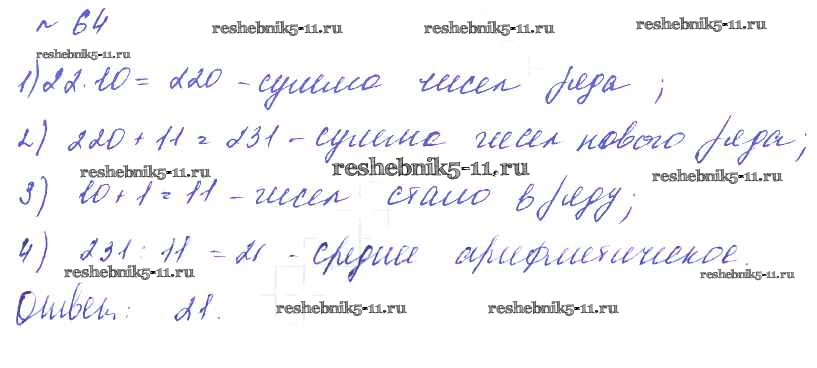 № 64
reshebnik5-11.ru reshebnik5-11.ru reshebnik5-11.ru
reshebnik5-11.ru
1) 22·10 = 220 - сумма чисел ряда;
2) 220 + 11 = 231 - сумма чисел нового ряда;
reshebnik5-11.ru reshebnik5-11.ru reshebnik5-11.ru
3) 10 + 1 = 11 - чисел стало в ряду;
4) 231 : 11 = 21 - среднее арифметическое.
reshebnik5-11.ru reshebnik5-11.ru
Ответ: 21.
reshebnik5-11.ru reshebnik5-11.ru